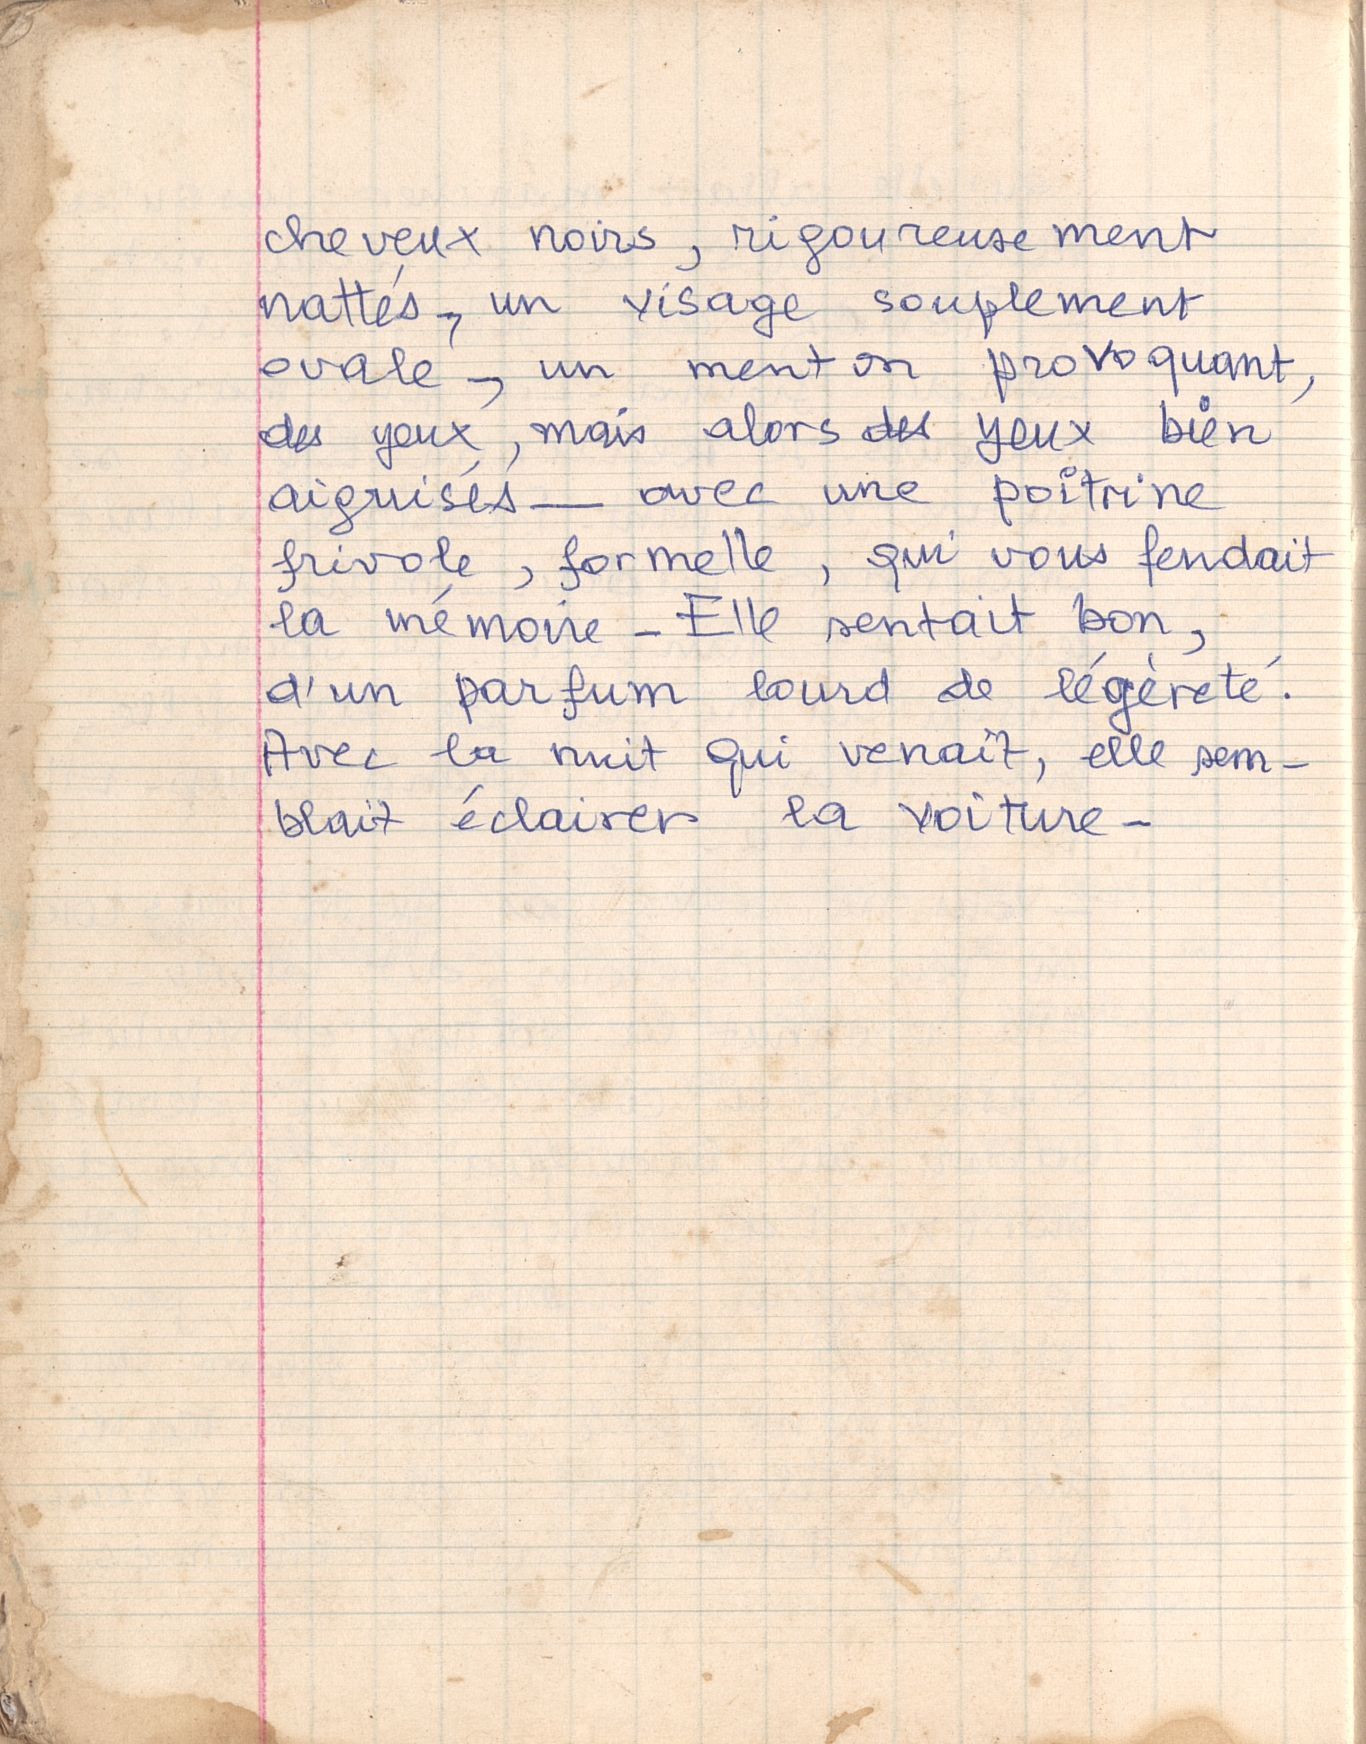 cheveux noirs, rigoureusement
nattés, un visage souplement
ovale, un menton provoquant,
des yeux, mais alors des yeux bien
aiguisés — avec une poitrine
frivole, formelle, qui vous fendait
la mémoire - Elle sentait bon,
d'un parfum lourd de légèreté.
Avec la nuit qui venait, elle sem-
blait éclairer la voiture -